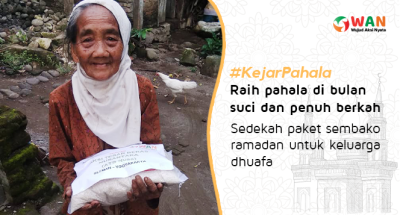 WAN
Wujud Aksi Nyata
#KejarPahala
Raih pahala di bulan
suci dan penuh berkah
Sedekah paket sembako
ramadan untuk keluarga
dhuafa